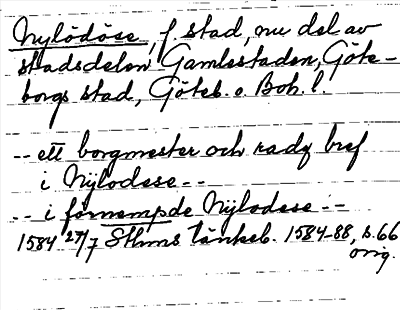 Nylödöse, f. stad, nu del av
stadsdelen Gamlestaden, Göte-
borgs stad, Göteb. o Boh. l.
-- ett borgmester och radz bref
i Nÿlodese --
-- i förnempde Nÿlodese --
1584 27/7 Sthms tänkeb. 1584-88, s. 66
orig.